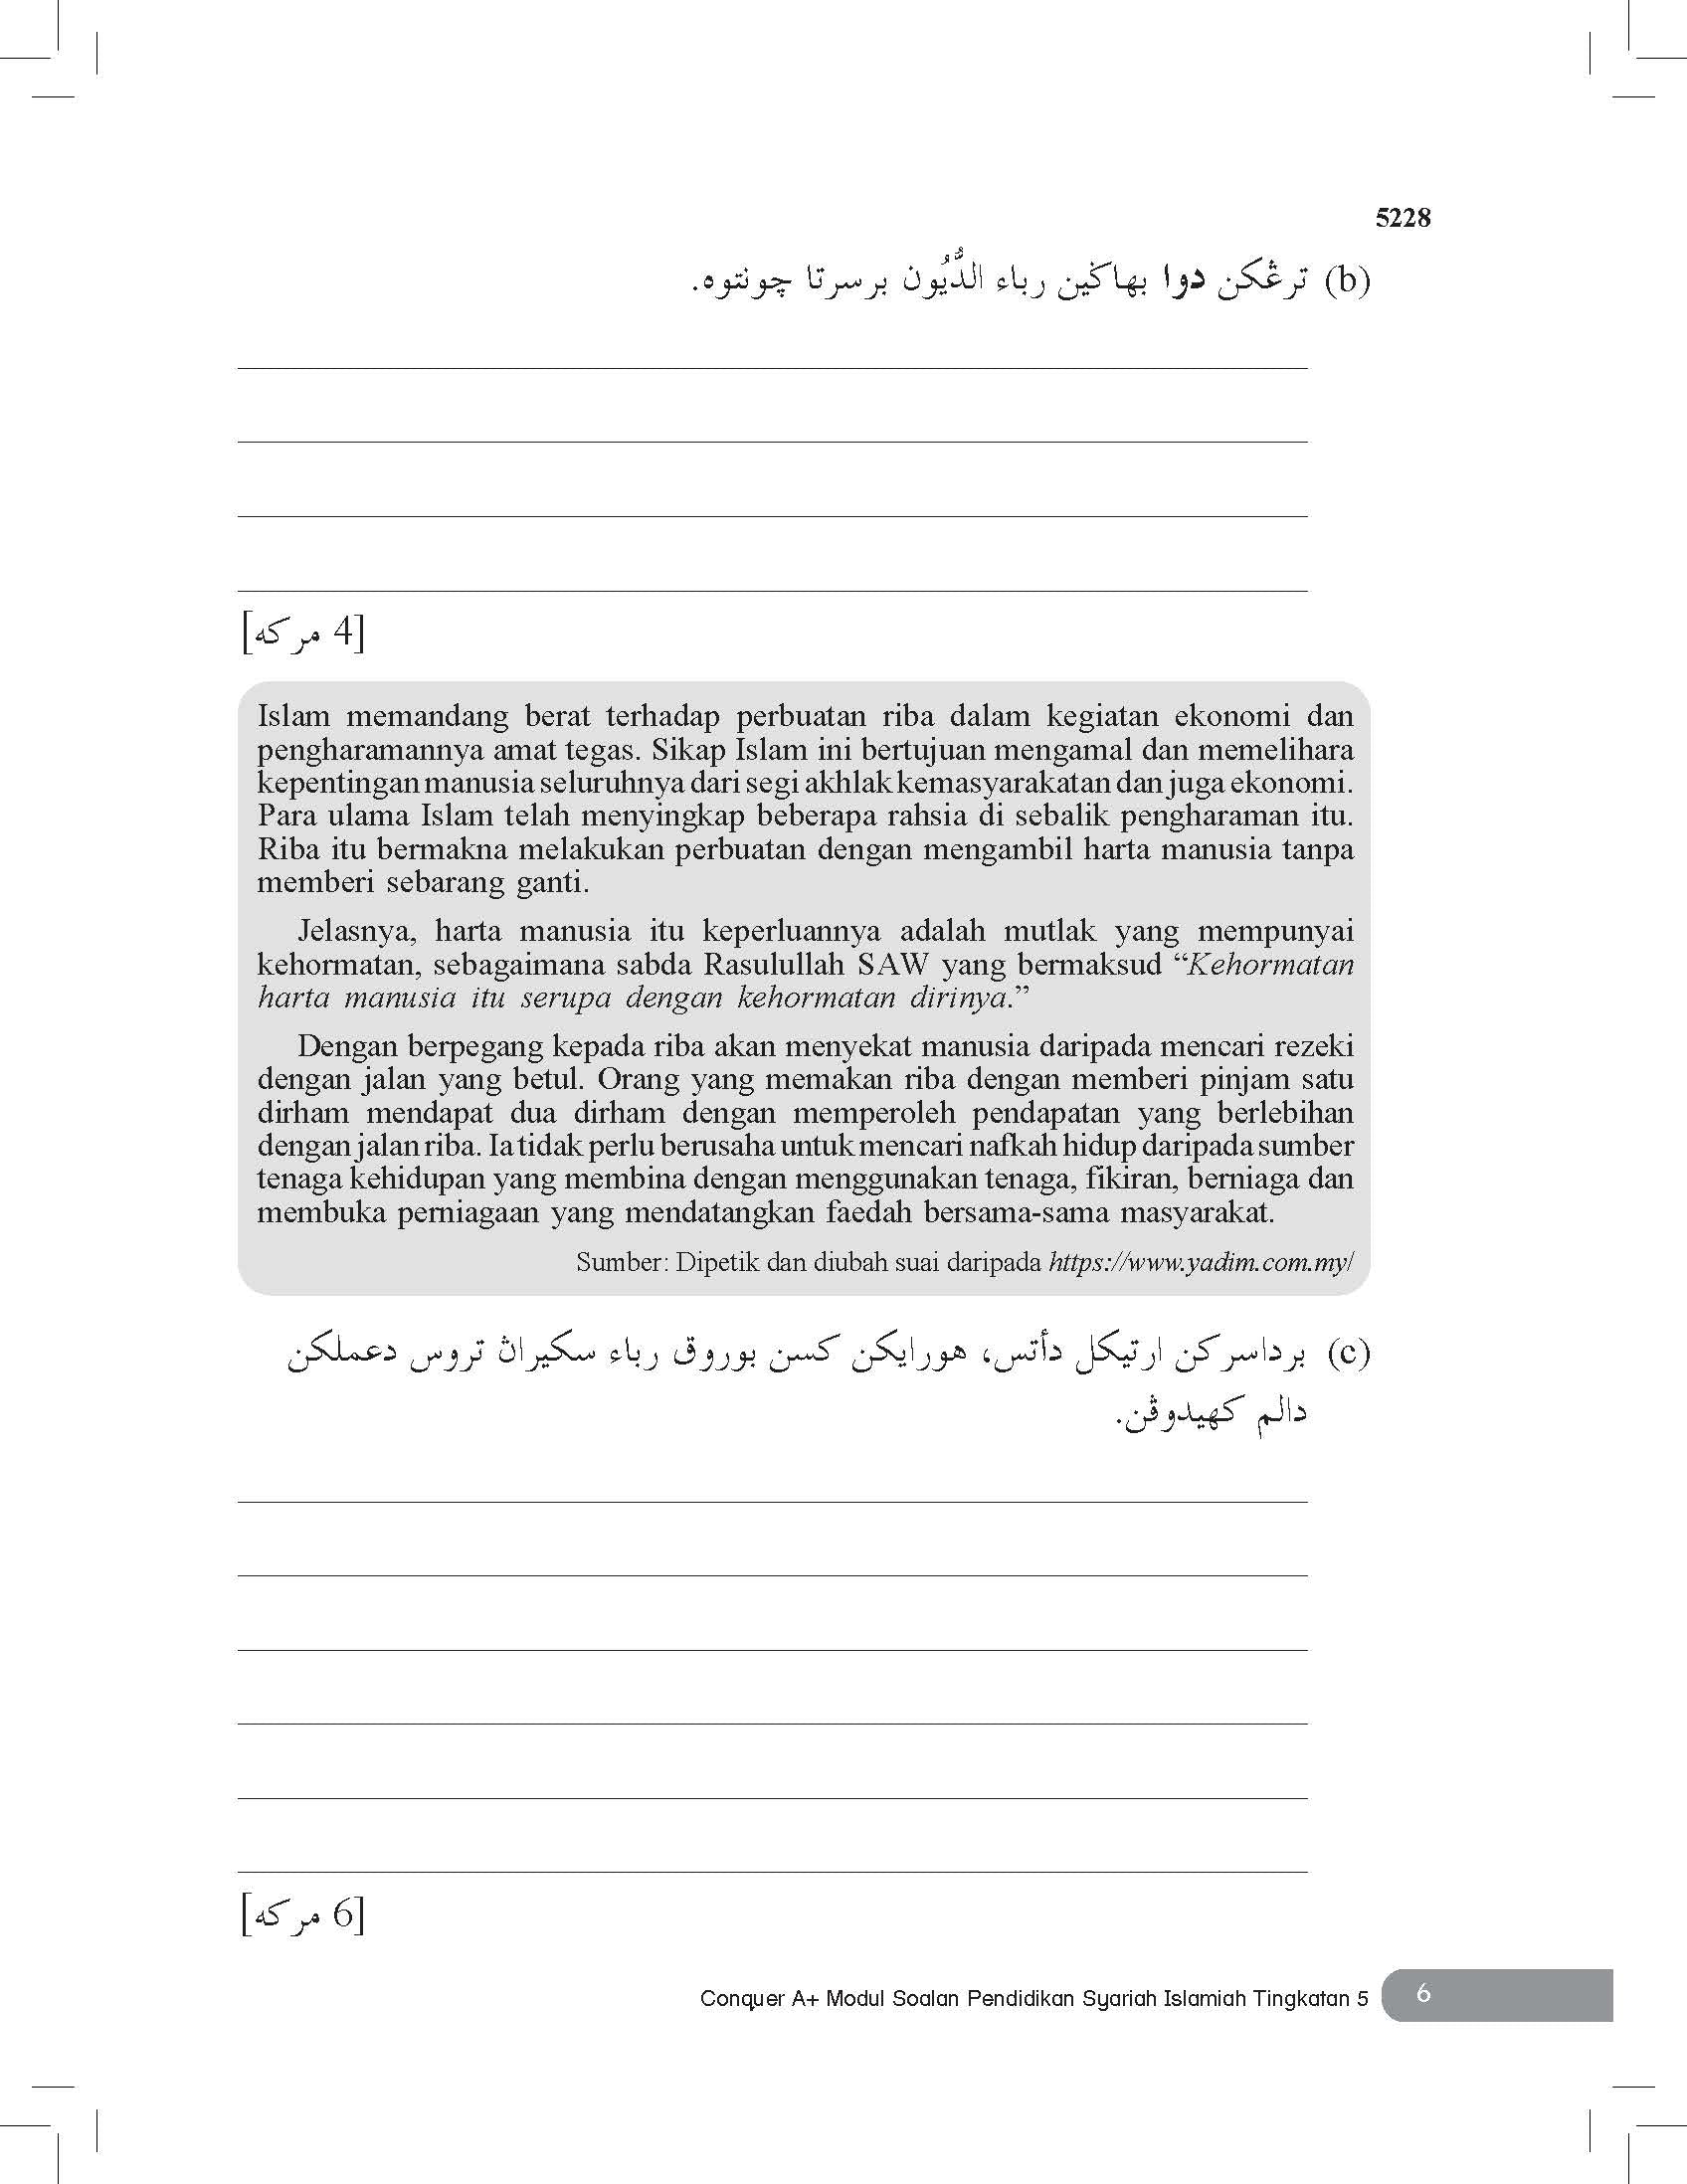 5228
(b) ترڠكن دوا بهاݢين رباء الدُّيُون برسرتا چونتوه.
[4 مركه]
Islam memandang berat terhadap perbuatan riba dalam kegiatan ekonomi dan
pengharamannya amat tegas. Sikap Islam ini bertujuan mengamal dan memelihara
kepentingan manusia seluruhnya dari segi akhlak kemasyarakatan dan juga ekonomi.
Para ulama Islam telah menyingkap beberapa rahsia di sebalik pengharaman itu.
Riba itu bermakna melakukan perbuatan dengan mengambil harta manusia tanpa
memberi sebarang ganti.
Jelasnya, harta manusia itu keperluannya adalah mutlak yang mempunyai
kehormatan, sebagaimana sabda Rasulullah SAW yang bermaksud “Kehormatan
harta manusia itu serupa dengan kehormatan dirinya.”
Dengan berpegang kepada riba akan menyekat manusia daripada mencari rezeki
dengan jalan yang betul. Orang yang memakan riba dengan memberi pinjam satu
dirham mendapat dua dirham dengan memperoleh pendapatan yang berlebihan
dengan jalan riba. Ia tidak perlu berusaha untuk mencari nafkah hidup daripada sumber
tenaga kehidupan yang membina dengan menggunakan tenaga, fikiran, berniaga dan
membuka perniagaan yang mendatangkan faedah bersama-sama masyarakat.
Sumber: Dipetik dan diubah suai daripada https://www.yadim.com.my/
(c) برداسركن ارتيكل دأتس، هورايكن كسن بوروق رباء سكيراڽ تروس دعملكن
دالم كهيدوڤن.
[6 مركه]
Conquer A+ Modul Soalan Pendidikan Syariah Islamiah Tingkatan 5
6